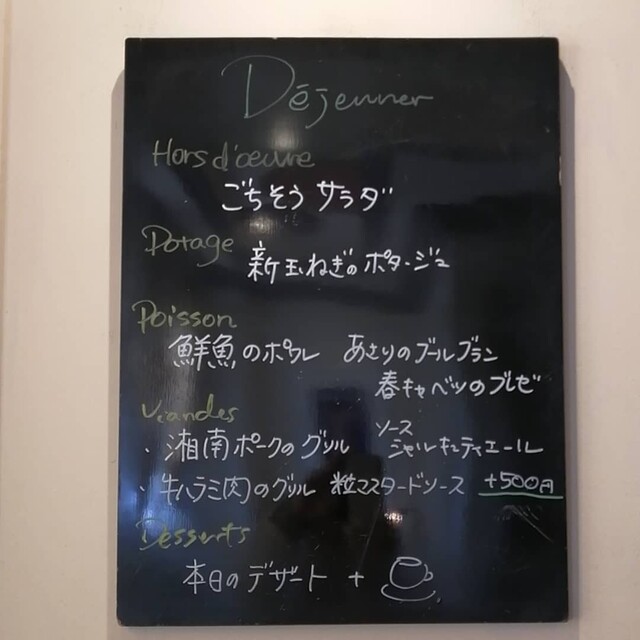 Déjeuner
Hors d'œuvre
ごちそうサラダ
Potage
新玉ねぎのポタージュ
Poisson
鮮魚のポワレ あさりのブールブラン
春キャベツのブレゼ
Viandes
・湘南ポークのグリル ソースシャルキュティエール
・牛ハラミ肉のグリル 粒マスタードソース +500円
Desserts
本日のデザート +